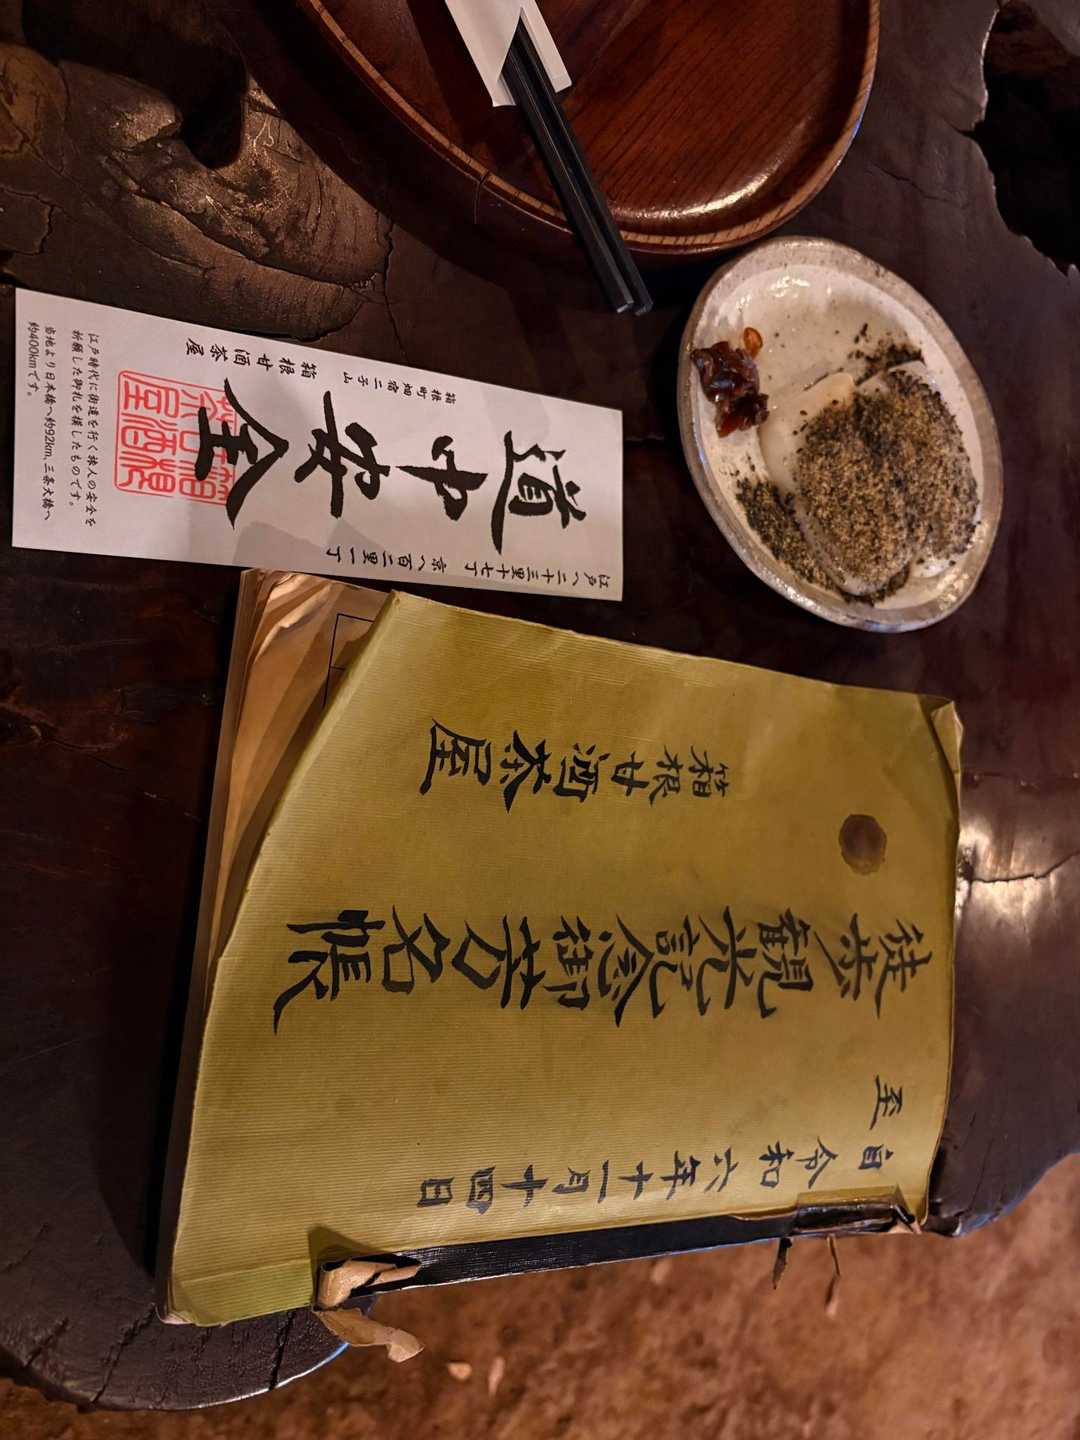 江戸へ二十三里十七丁　京へ百二里一丁
道中安全
箱根町畑宿二子山
箱根甘酒茶屋
箱根甘酒茶屋
江戸時代に街道を行く旅人の安全を
祈願した御札を模したものです。
当地より日本橋へ約92km,三条大橋へ
約400kmです。
自令和六年十一月十四日
至
徒歩観光記念御芳名帳
箱根甘酒茶屋